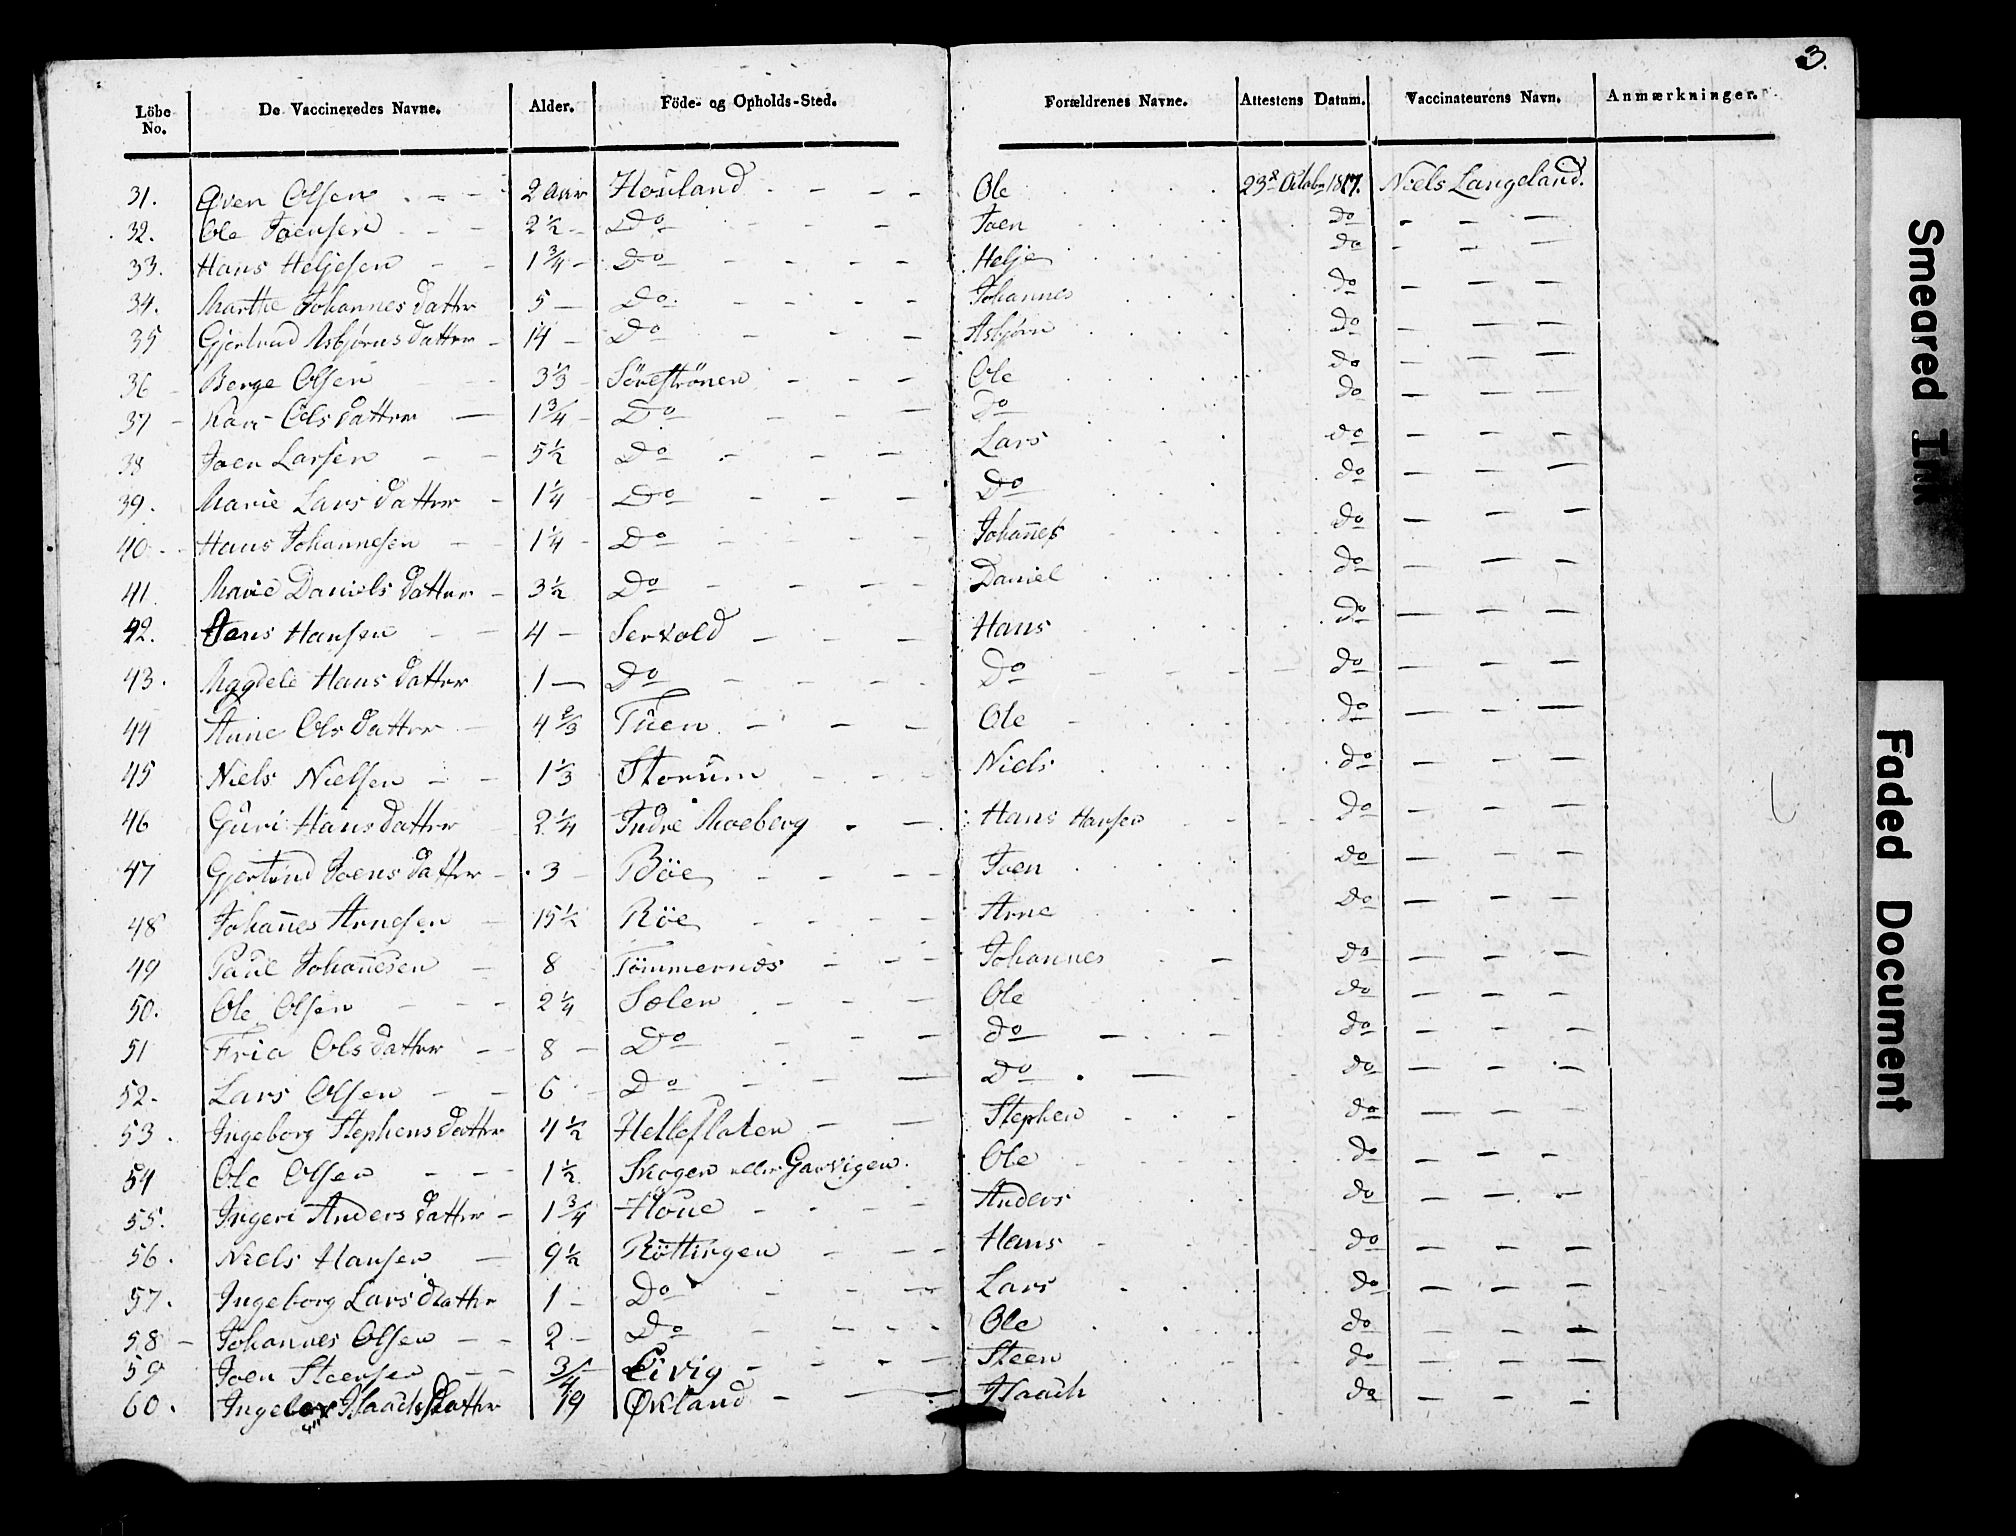 3.
Löbe No. De Vaccineredes Navne. Alder. Föde- og Opholds-Sted. Forældrenes Navne. Attestens Datum. Vaccinateurens Navn. Anmærkninger.
31. Sven Olsen 2 Aar Houland Ole 23de October 1817. Niels Langeland.
32. Ole Joensen 2 1/2 Do Joen do
33. Hans Heljesen 1 3/4 Do Helje do
34. Marthe Johannes datter 5 Do Johannes do
35 Gjertrud Asbjørns datter 14 Do Asbjørn do
36 Berge Olsen 3 1/3 Söreströnen Ole do
37 Kari Ols datter 1 3/4 Do Do do
38 Joen Larsen 5 1/2 Do Lars do
39. Marie Lars datter 1 1/4 Do Do do
40. Hans Johannesen 1 1/4 Do Johannes do
41. Marie Daniels datter 3 1/2 Do Daniel do
42. Jens Hansen 4 Servold Hans do
43. Magdele Hans datter 1 Do Do do
44 Anne Ols datter 4 2/3 Tuen Ole do
45 Niels Nielsen 1 1/3 Storum Niels do
46 Guri Hans datter 2 1/4 Indre Moeberg Hans Hansen do
47 Gjertrud Joens datter 3 Böe Joen do
48 Johannes Arnesen 15 1/2 Röe Arne do
49 Paul Johannesen 8 Tömmernæs Johannes do
50. Ole Olsen 2 1/4 Sælen Ole do
51 Fria Ols datter 8 Do do do
52. Lars Olsen 6 Do Do do
53. Ingeborg Stephens datter 4 1/2 Hetleflaten Stephen do
54 Ole Olsen 1 1/2 Skogen eller Garvigen Ole do
55. Ingeri Anders datter 1 3/4 Houe Anders do
56. Niels Hansen 9 1/2 Röttingen Hans do
57. Ingeborg Lars datter 1 Do Lars do
58 Johannes Olsen 2 Do Ole do
59 Joen Steensen 3/4 Eivig Steen do
60. Isaachs datter 19 Økland Isaach do
Smeared Ink
Faded Document